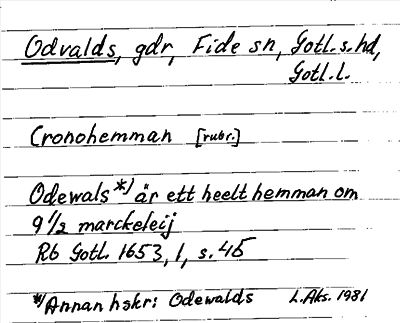 Odvalds, gdr, Fide sn, Gotl. s. hd,
Gotl. l.
Cronohemman [rubr.]
Odewals*) är ett heelt hemman om
9 1/2 marckeleij
Rb Gotl. 1653, 1, s. 45
*) Annan hskr: Odewalds L. Aks. 1981